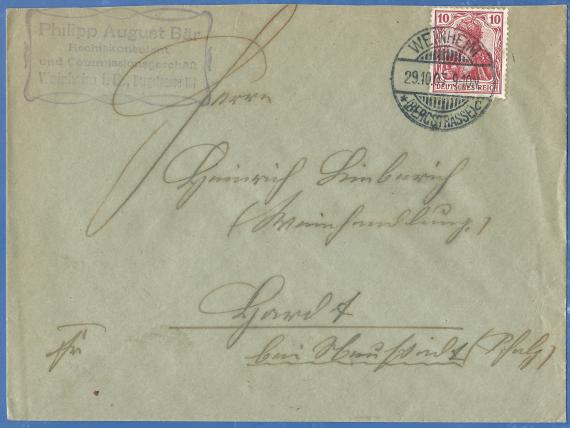 Philipp August Bär
Rechtskonsulent
und Commissionsgeschäft
Weinheim i. B.,
10 10
DEUTSCHES REICH
WEINHEIM
29.10.
*(BERGSTRASSE)*
Herrn
Heinrich Limbarich
(Weinhandlung)
Hardt
bei Neustadt (Pfalz)
Fr